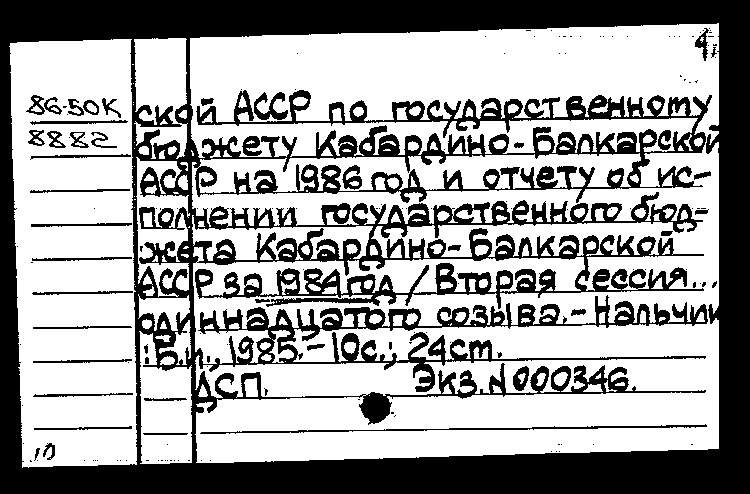 86-50К
8882
ской АССР по государственному
бюджету Кабардино-Балкарской
АССР на 1986 год и отчету об ис-
полнении государственного бюд-
жета Кабардино-Балкарской
АССР за 1984 год / Вторая сессия...
одиннадцатого созыва.- Нальчик
: Б.и., 1985.- 10с.; 24см.
ДСП. Экз. N 000346.
10